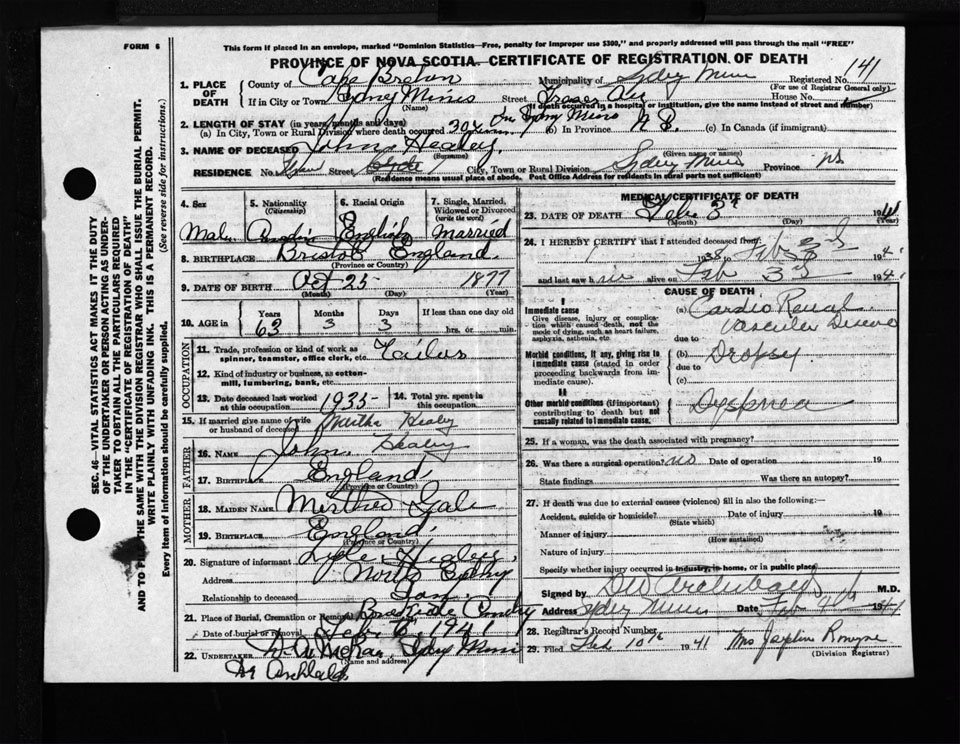 FORM 6
This form if placed in an envelope, marked "Dominion Statistics—Free, penalty for improper use $300," and properly addressed will pass through the mail "FREE"
PROVINCE OF NOVA SCOTIA. CERTIFICATE OF REGISTRATION OF DEATH
SEC. 46—VITAL STATISTICS ACT MAKES IT THE DUTY
OF THE UNDERTAKER OR PERSON ACTING AS UNDER-
TAKER TO OBTAIN ALL THE PARTICULARS REQUIRED
IN THE "CERTIFICATE OF REGISTRATION OF DEATH"
AND TO THE SAME WITH THE DIVISION REGISTRAR WHO SHALL ISSUE THE BURIAL PERMIT.
WRITE PLAINLY WITH UNFADING INK. THIS IS A PERMANENT RECORD.
Every item of information should be carefully supplied. (See reverse side for instructions.)
1. PLACE OF DEATH
County of Cape Breton Municipality of Sydney Mines Registered No. 141
(For use of Registrar General only)
If in City or Town Sydney Mines Street Fraser Ave House No.
(Name) (If death occurred in a hospital or institution, give the name instead of street and number)
2. LENGTH OF STAY (in years, months and days)
(a) In City, Town or Rural Division where death occurred (b) In Province (c) In Canada (if immigrant)
3. NAME OF DECEASED John Healey
(Surname) (Given name or names)
RESIDENCE No. Street City, Town or Rural Division Sydney Mines Province NS
(Residence means usual place of abode. Post Office Address for residents in rural parts not sufficient)
4. Sex Male
5. Nationality (Citizenship)
6. Racial Origin English
7. Single, Married, Widowed or Divorced (write the word) Married
8. BIRTHPLACE Bristol England
(Province or Country)
9. DATE OF BIRTH Oct 25 1877
(Month) (Day) (Year)
10. AGE in Years 63 Months 3 Days 3 If less than one day old
hrs. or min.
OCCUPATION
11. Trade, profession or kind of work as spinner, teamster, office clerk, etc.
12. Kind of industry or business, as cotton-mill, lumbering, bank, etc.
13. Date deceased last worked at this occupation 1935
14. Total yrs. spent in this occupation
15. If married give name of wife or husband of deceased Martha Healy
FATHER
16. NAME John Healey
17. BIRTHPLACE England
(Province or Country)
MOTHER
18. MAIDEN NAME Gale
19. BIRTHPLACE England
(Province or Country)
20. Signature of informant
Address North Sydney
Relationship to deceased Son
21. Place of Burial, Cremation or Removal
Date of burial or removal Feb. 6 194
22. UNDERTAKER Sydney Mines
(Name and address)
MEDICAL CERTIFICATE OF DEATH
23. DATE OF DEATH Feb. 3rd 1941
(Month) (Day) (Year)
24. I HEREBY CERTIFY that I attended deceased from:
1938 to Feb 3rd 194
and last saw h alive on Feb 3rd 194
CAUSE OF DEATH
I
Immediate cause
Give disease, injury or complication which caused death, not the mode of dying, such as heart failure, asphyxia, asthenia, etc
(a) Cardio Renal Vascular Disease
due to
Morbid conditions, if any, giving rise to immediate cause (stated in order proceeding backwards from immediate cause).
(b) Dropsy
due to
(c)
II
Other morbid conditions (if important) contributing to death but not causally related to immediate cause.
Dyspnea
25. If a woman, was the death associated with pregnancy?
26. Was there a surgical operation? no Date of operation 19
State findings Was there an autopsy?
27. If death was due to external causes (violence) fill in also the following:—
Accident, suicide or homicide? Date of injury 19
(State which)
Manner of injury
(How sustained)
Nature of injury
Specify whether injury occurred in industry, in home, or in public place
Signed by M.D.
Address Sydney Mines Date Feb 4th 1941
28. Registrar's Record Number
29. Filed Feb 10th 1941 Mrs Josephine
(Division Registrar)